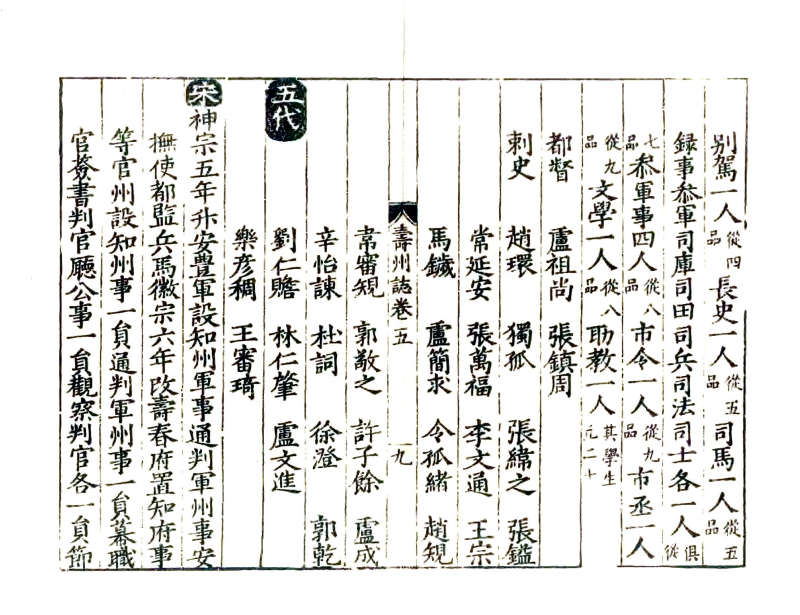 别駕一人從四品長史一人從五品司馬一人從五品
録事叅軍司庫司田司兵司法司士各一人俱從
七品叅軍事四人從八品市令一人從九品市丞一人
從九品文學一人從八品助教一人其學生六二十
都督 盧祖尚 張鎮周
刺史 趙環 獨孤 張緯之 張鎰
常延安 張萬福 李文通 王宗
馬鏚 盧簡求 令孤緒 趙規
壽州誌卷五 九
韋審規 郭敬之 許子餘 盧成
辛怡諫 杜詞 徐澄 郭乾
五代 劉仁贍 林仁肇 盧文進
樂彦稠 王審琦
宋神宗五年升安豐軍設知州軍事通判軍州事安
撫使都監兵馬徽宗六年改壽春府置知府事
等官州設知州事一員通判軍州事一員幕職
官簽書判官廳公事一員觀察判官各一員節